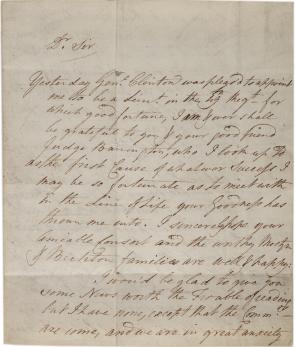 Dr. Sir
Yesterday Genl. Clinton was pleas'd to appoint
me to be a Lieut. in the Regt. for
which good fortune, I am & ever shall
be grateful to you & your good friend
Judge Barrington, who I look up to
as the first Cause of whatever Success I
may be so fortunate as to meet with
in the Line of Life your Goodness has
thrown me into. I sincerely hope your
amiable Consort and the worthy
& families are well & happy.
I would be glad to give you
some News worth the trouble of reading
but I have none, except that the Comm
are come, and we are in great anxiety